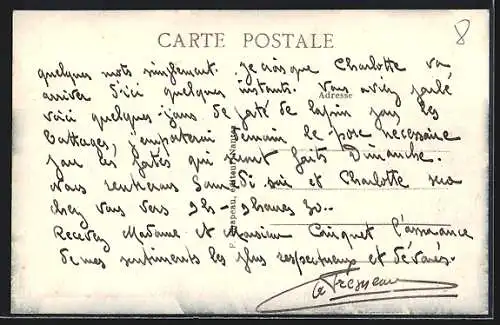 CARTE POSTALE
8
quelques mots simplement. Je crois que Charlotte va
arriver d'ici quelques instants. Vous aviez parlé
Adresse
voici quelques jours de pâté de lapin pour les
battages, j'emporterai demain le porc necessaire
pour les pâtés qui seront faits Dimanche.
nous rentrerons Samedi soir et Charlotte sera
chez vous vers 9h - 9heures 30..
Recevez Madame et Monsieur l'assurance
de mes sentiments les plus respectueux et dévoués.
P. Chapeau, éditeur, Nantes